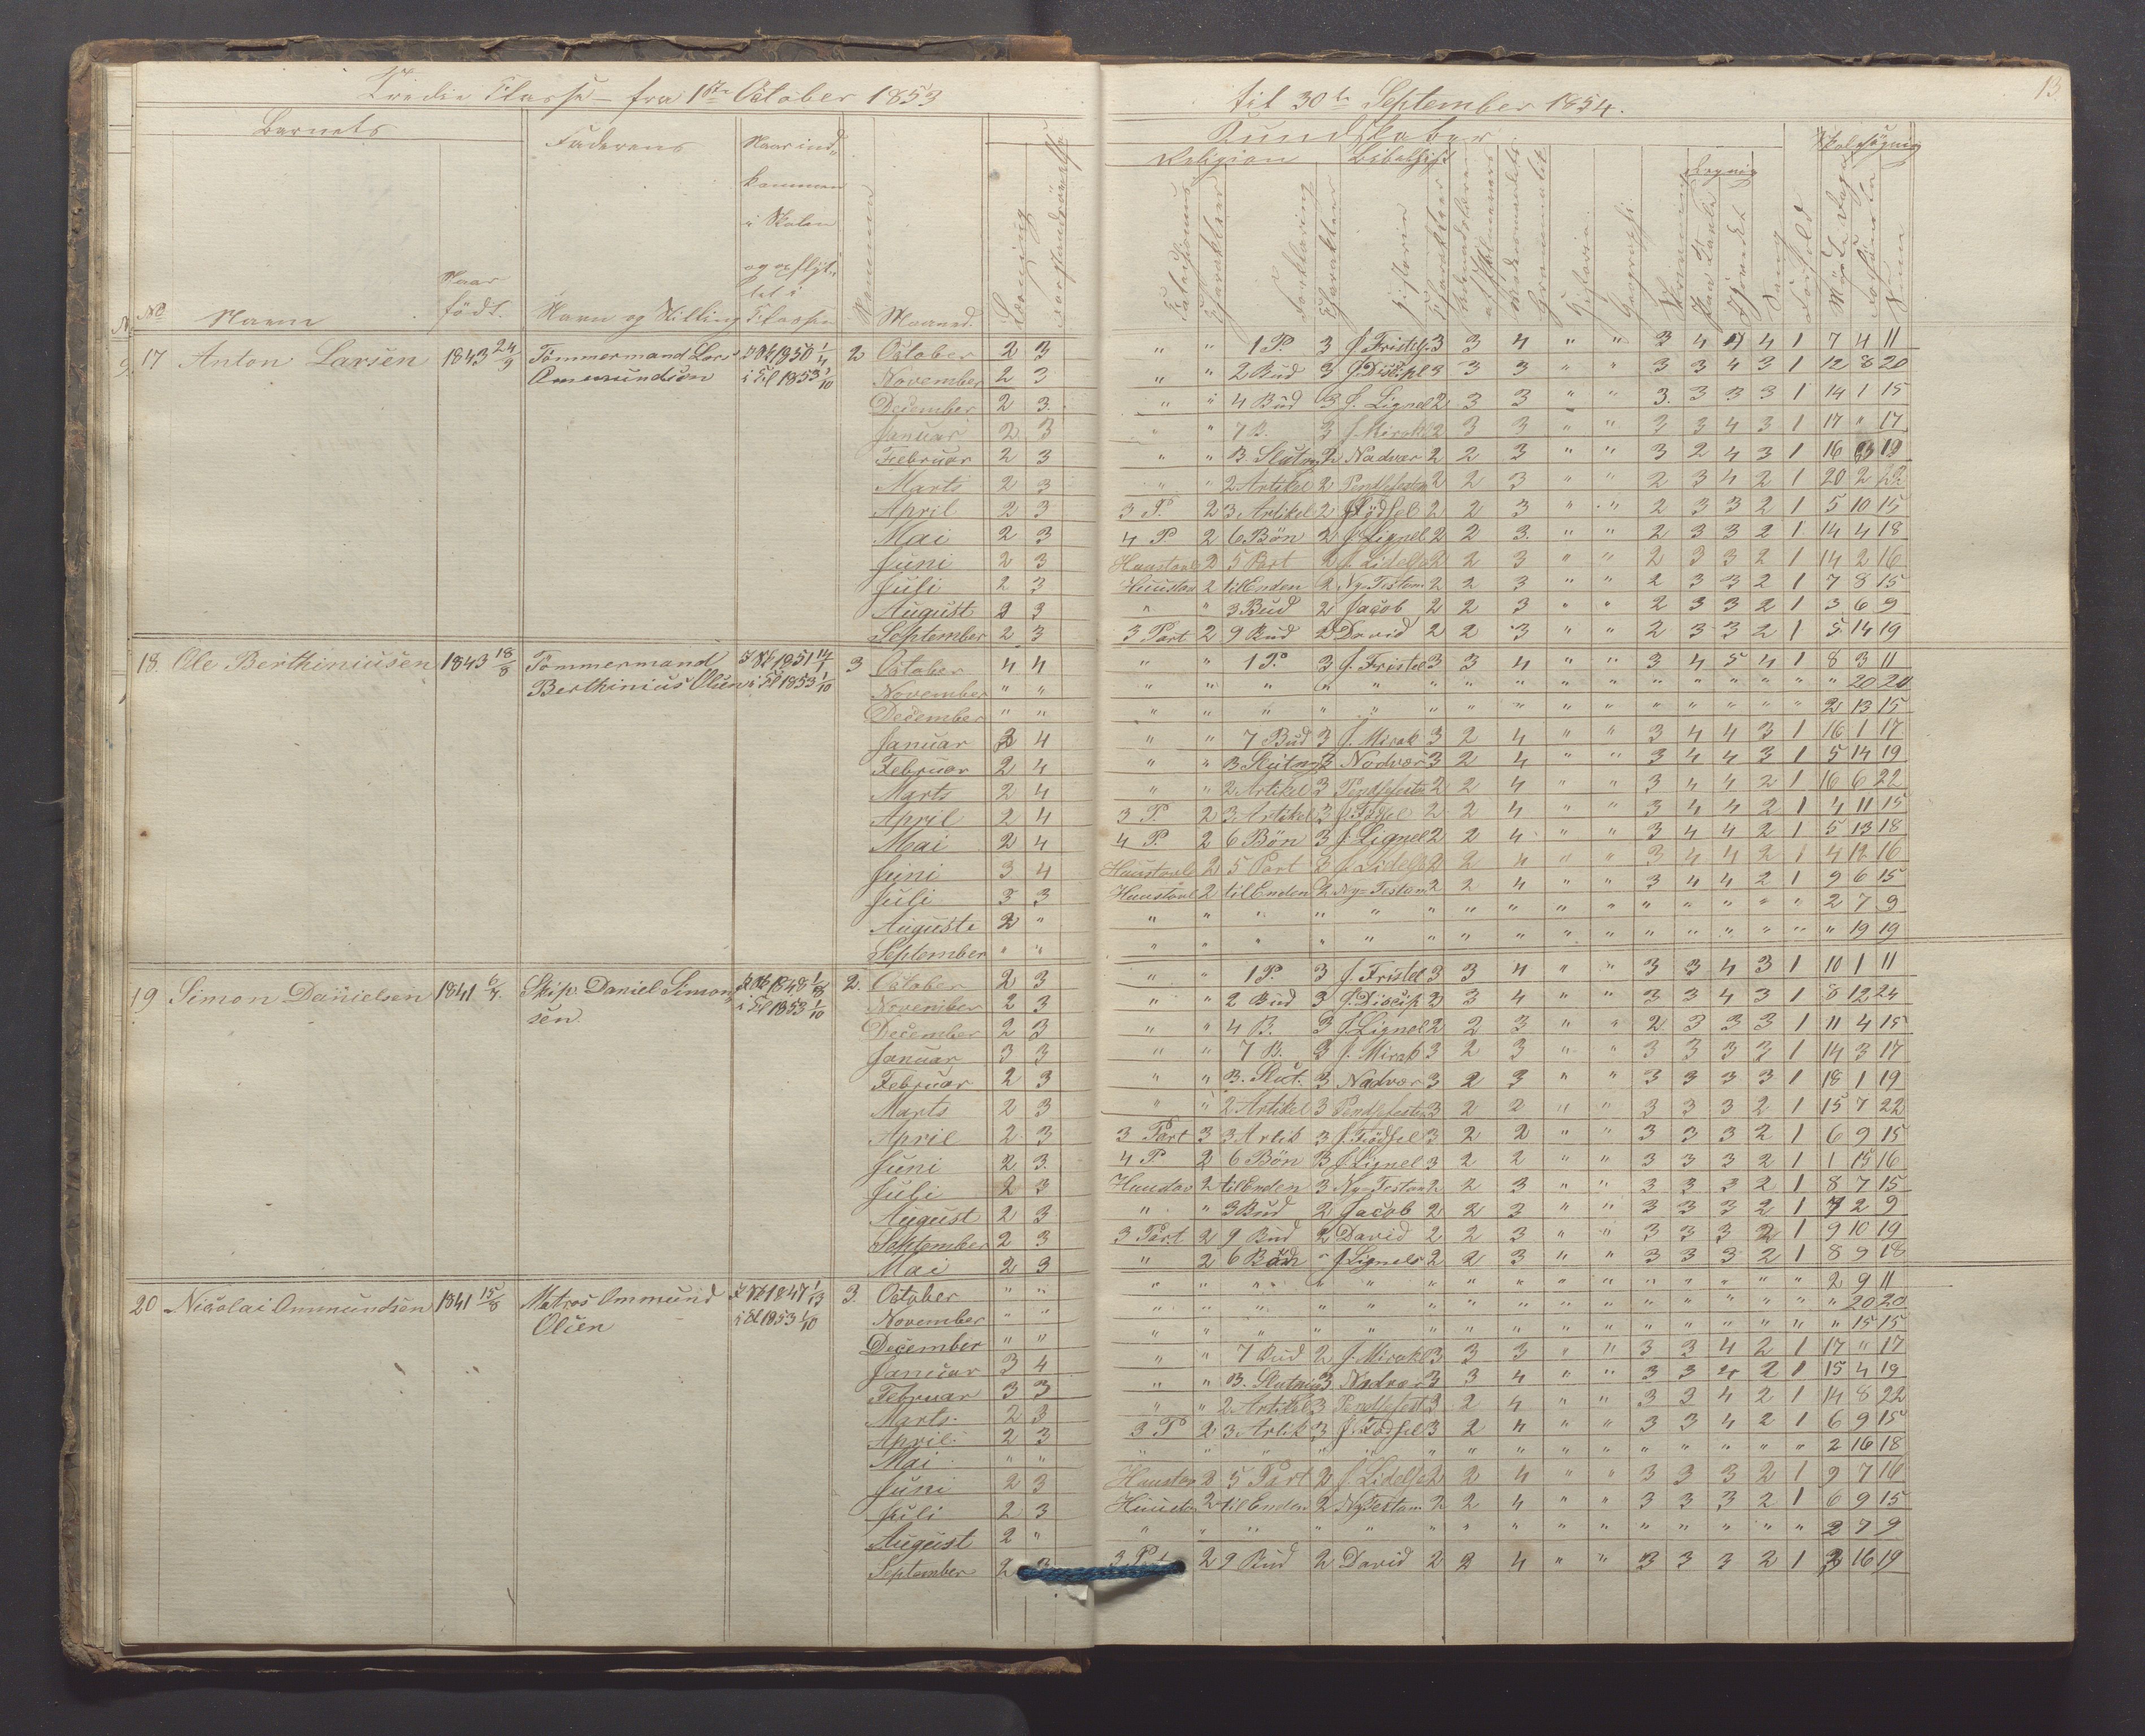 Tredie Classe – fra 1ste October 1853 til 30te September 1854.
13
Barnets Faderens Naar ind- Kundskaber Skolesøgning
kommen Religion Bibelhist Regning
i Skolen
og opflyt-
Naar tet i
No Navn født. Navn og Stilling Classen Nummer Maaned. Læsning
17 Anton Larsen 1843 24/9 Tømmermand Lars 1850 1/4 2 October 2 3 " " 1 P. 3 J. Fristel. 3 3 4 " " 3 4 4 4 1 7 4 11
Ommundsen i Cl 1853 1/10 November 2 3 " " 2 Bud 3 J. Discipl 3 3 3 " " 3 3 4 3 1 12 8 20
December 2 3 " " 4 Bud 3 J. Lignel 2 3 3 " " 3 3 3 3 1 14 1 15
Januar 2 3 " " 7 B. 3 J. Mirakl 2 3 3 " " 3 3 4 3 1 17 " 17
Februar 2 3 " " B. Slutng 2 Nadver 2 2 3 " " 3 2 4 3 1 16 3 19
Marts 2 3 " " 2 Artikel 2 Pendsefesten 2 2 3 " " 2 3 4 2 1 20 2 22
April 2 3 3 P. 2 3 Artikel 2 J. Fødsel 2 2 3 " " 2 3 3 2 1 5 10 15
Mai 2 3 4 P 2 6 Bøn 2 J. Lignel 2 2 3 " " 2 3 3 2 1 14 4 18
Juni 2 3 Huustavle 2 5 Part 2 J. Lidelse 2 2 3 " " 2 3 3 2 1 14 2 16
Juli 2 3 Huustav 2 til Enden 2 Ny-Testam 2 2 3 " " 2 3 3 2 1 7 8 15
August 2 3 " " 3 Bud 2 Jacob 2 2 3 " " 2 3 3 2 1 3 6 9
September 2 3 3 Part 2 9 Bud 2 David 2 2 3 " " 2 3 3 2 1 5 14 19
18. Ole Berthiniusen 1843 18/8 Tømmermand 1851 14/1 3 October 4 4 " " 1 P. 3 J. Fristel 3 3 4 " " 3 4 5 4 1 8 3 11
Berthinius Olsen i Cl 1853 1/10 November " " " " " " " " " " " " " " " " " " 20 20
December " " " " " " " " " " " " " " " " " 2 13 15
Januar 3 4 " " 7 Bud 3 J. Mirak 3 2 4 " " 3 4 4 3 1 16 1 17
Februar 2 4 " " B. Slutng 3 Nadver 3 2 4 " " 3 4 4 3 1 5 14 19
Marts 2 4 " " 2 Artikel 3 Pendsefesten 2 2 4 " " 3 4 4 2 1 16 6 22
April 2 4 3 P. 2 3 Artikel 3 J. Fødsel 2 2 4 " " 3 4 4 2 1 4 11 15
Mai 2 4 4 P. 2 6 Bøn 3 J. Lignel 2 2 4 " " 3 4 4 2 1 5 13 18
Juni 3 4 Huustavle 2 5 Part 3 J. Lidelse 2 2 4 " " 3 4 4 2 1 4 12 16
Juli 3 3 Huustavl 2 til Enden 2 Ny-Testam 2 2 4 " " 3 4 4 2 1 9 6 15
August 2 " " " " " " " " " " " " " " " " 2 7 9
September " " " " " " " " " " " " " " " " " " 19 19
19 Simon Danielsen 1841 6/4 Skip. Daniel Simon- 1848 2. October 2 3 " " 1 P. 3 J. Fristel 3 3 4 " " 3 3 4 3 1 10 1 11
sen. i Cl 1853 1/10 November 2 3 " " 2 Bud 3 J. Discip 3 4 " " 3 3 4 3 1 8 12
December 2 3 " " 4 B. 3 J. Lignel 2 2 3 " " 2 3 3 3 1 11 4 15
Januar 3 3 " " 7 B. 3 J. Mirak 3 2 3 " " 3 3 3 3 1 14 3 17
Februar 2 3 " " B. Slut. 3 Nadver 3 2 3 " " 3 3 3 3 1 18 1 19
Marts 2 3 " " 2 Artikel 3 Pendsefesten 3 2 2 " " 3 3 3 2 1 15 7 22
April 2 3 3 Part 3 3 Artik 3 J. Fødsel 3 2 2 " " 3 3 3 2 1 6 9 15
Juni 2 3 4 P. 2 6 Bøn 3 J. Lignel 3 2 2 " " 3 3 3 2 1 1 15 16
Juli 2 3 Huustav 2 til Enden 3 Ny-Testam 2 2 3 " " 3 3 3 2 1 8 7 15
August 2 3 " " 3 Bud 2 Jacob 2 2 3 " " 3 3 3 2 1 7 2 9
September 2 3 3 Part 2 9 Bud 2 David 2 2 3 " " 3 3 3 2 1 9 10 19
Mai 2 3 " 2 6 " J. Lignels 2 2 3 " " 3 3 3 2 1 8 9 18
20 Nicolai Ommundsen 1841 15/8 Matros Ommund 1847 3. October " " " " " " " " " " " " " " " " " 2 9 11
Olsen i Cl 1853 1/10 November " " " " " " " " " " " " " " " " " " 20 20
December " " " " " " " " " " " " " " " " " " 15 15
Januar 3 4 " " 7 Bud 2 J. Mirakl 3 3 3 " " 3 3 4 2 1 17 " 17
Februar 3 3 " " B. Slutning 3 Nadver 3 3 4 " " 3 3 4 2 1 15 4 19
Marts. 2 3 " " 2 Artikel 3 Pendsefest 3 2 4 " " 3 3 4 2 1 14 8 22
April. 2 3 3 P 2 3 Artik 3 J. Fødsel 3 2 4 " " 3 3 4 2 1 6 9 15
Mai " " " " " " " " " " " " " " " " " 2 16 18
Juni 2 3 Huustav 2 5 Part 2 J. Lidelse 2 2 4 " " 3 3 3 2 1 9 7 16
Juli 2 3 Huustav 2 til Enden 2 Ny Testam 2 2 4 " " 3 3 3 2 1 6 9 15
August 2 " " " " " " " " " " " " " " " " 2 7 9
September 2 3 3 P 2 9 Bud 2 David 2 2 4 " " 3 3 3 2 1 3 16 19